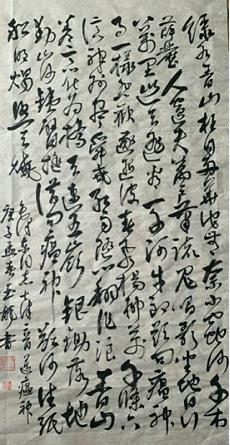 绿水青山枉自多華佗無奈小虫何千村
薜荔人遗矢万户萧疏鬼唱歌坐地日行八
萬里巡天遥看一千河牛郎欲问瘟神
事一样悲欢逐逝波春风杨柳萬千條六
億神州尽舜尧红雨随心翻作浪青山
着意化为橋天连五岭银锄落地
动山河铁臂摇借问瘟神欲何往纸
船明烛照天烧
毛泽东同志七律二首送瘟神
庚子孟春书